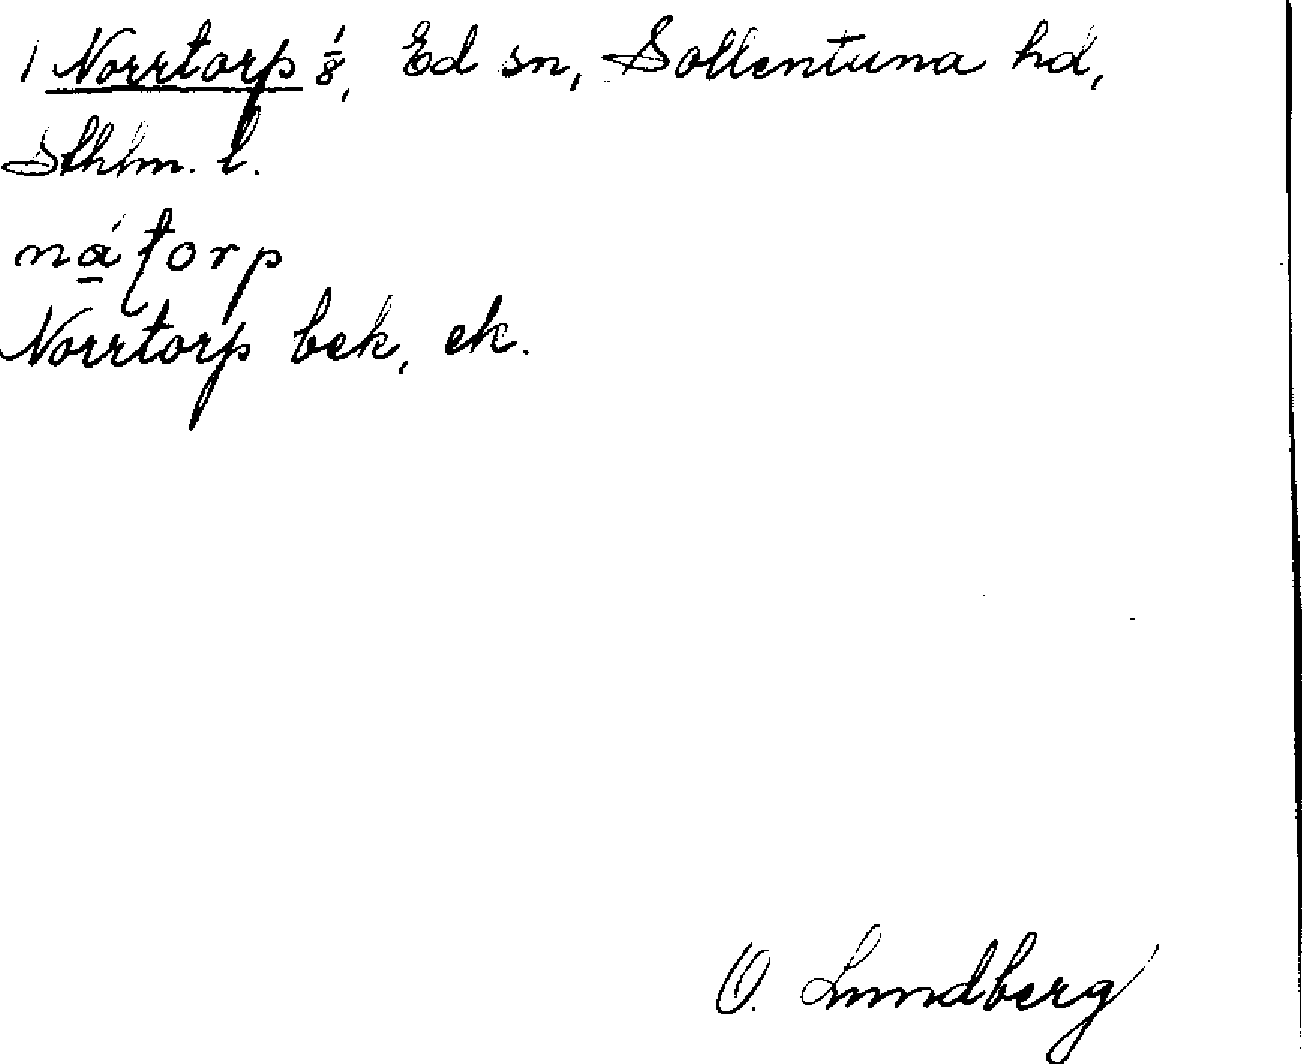 1 Norrtorp 1/8, Ed sn, Sollentuna hd,
Sthlm. l.
nátorp
Norrtorp bek, ek.
O. Lundberg